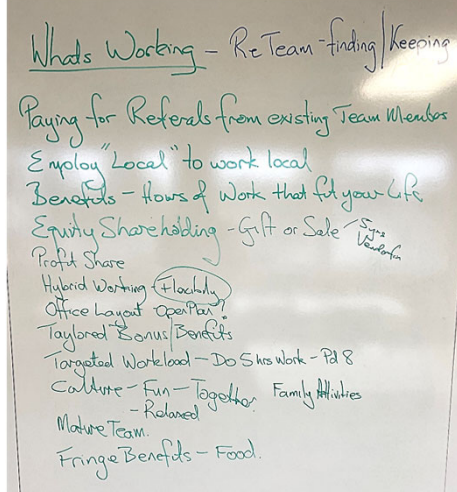 Whats Working - Re Team - finding/Keeping
Paying for Referals from existing Team Members
Employ "Local" to work local
Benefits - Hours of Work that fit your Life
Equity Shareholding - Gift or Sale - 5yrs
Profit Share
Hybrid Working - Flexibility
Office Layout - Open Plan?
Taylored Bonus/Benefits
Targeted Workload - Do 5 hrs Work - Pd 8
Culture - Fun - Together Family Activities
- Relaxed
Mature Team.
Fringe Benefits - Food.